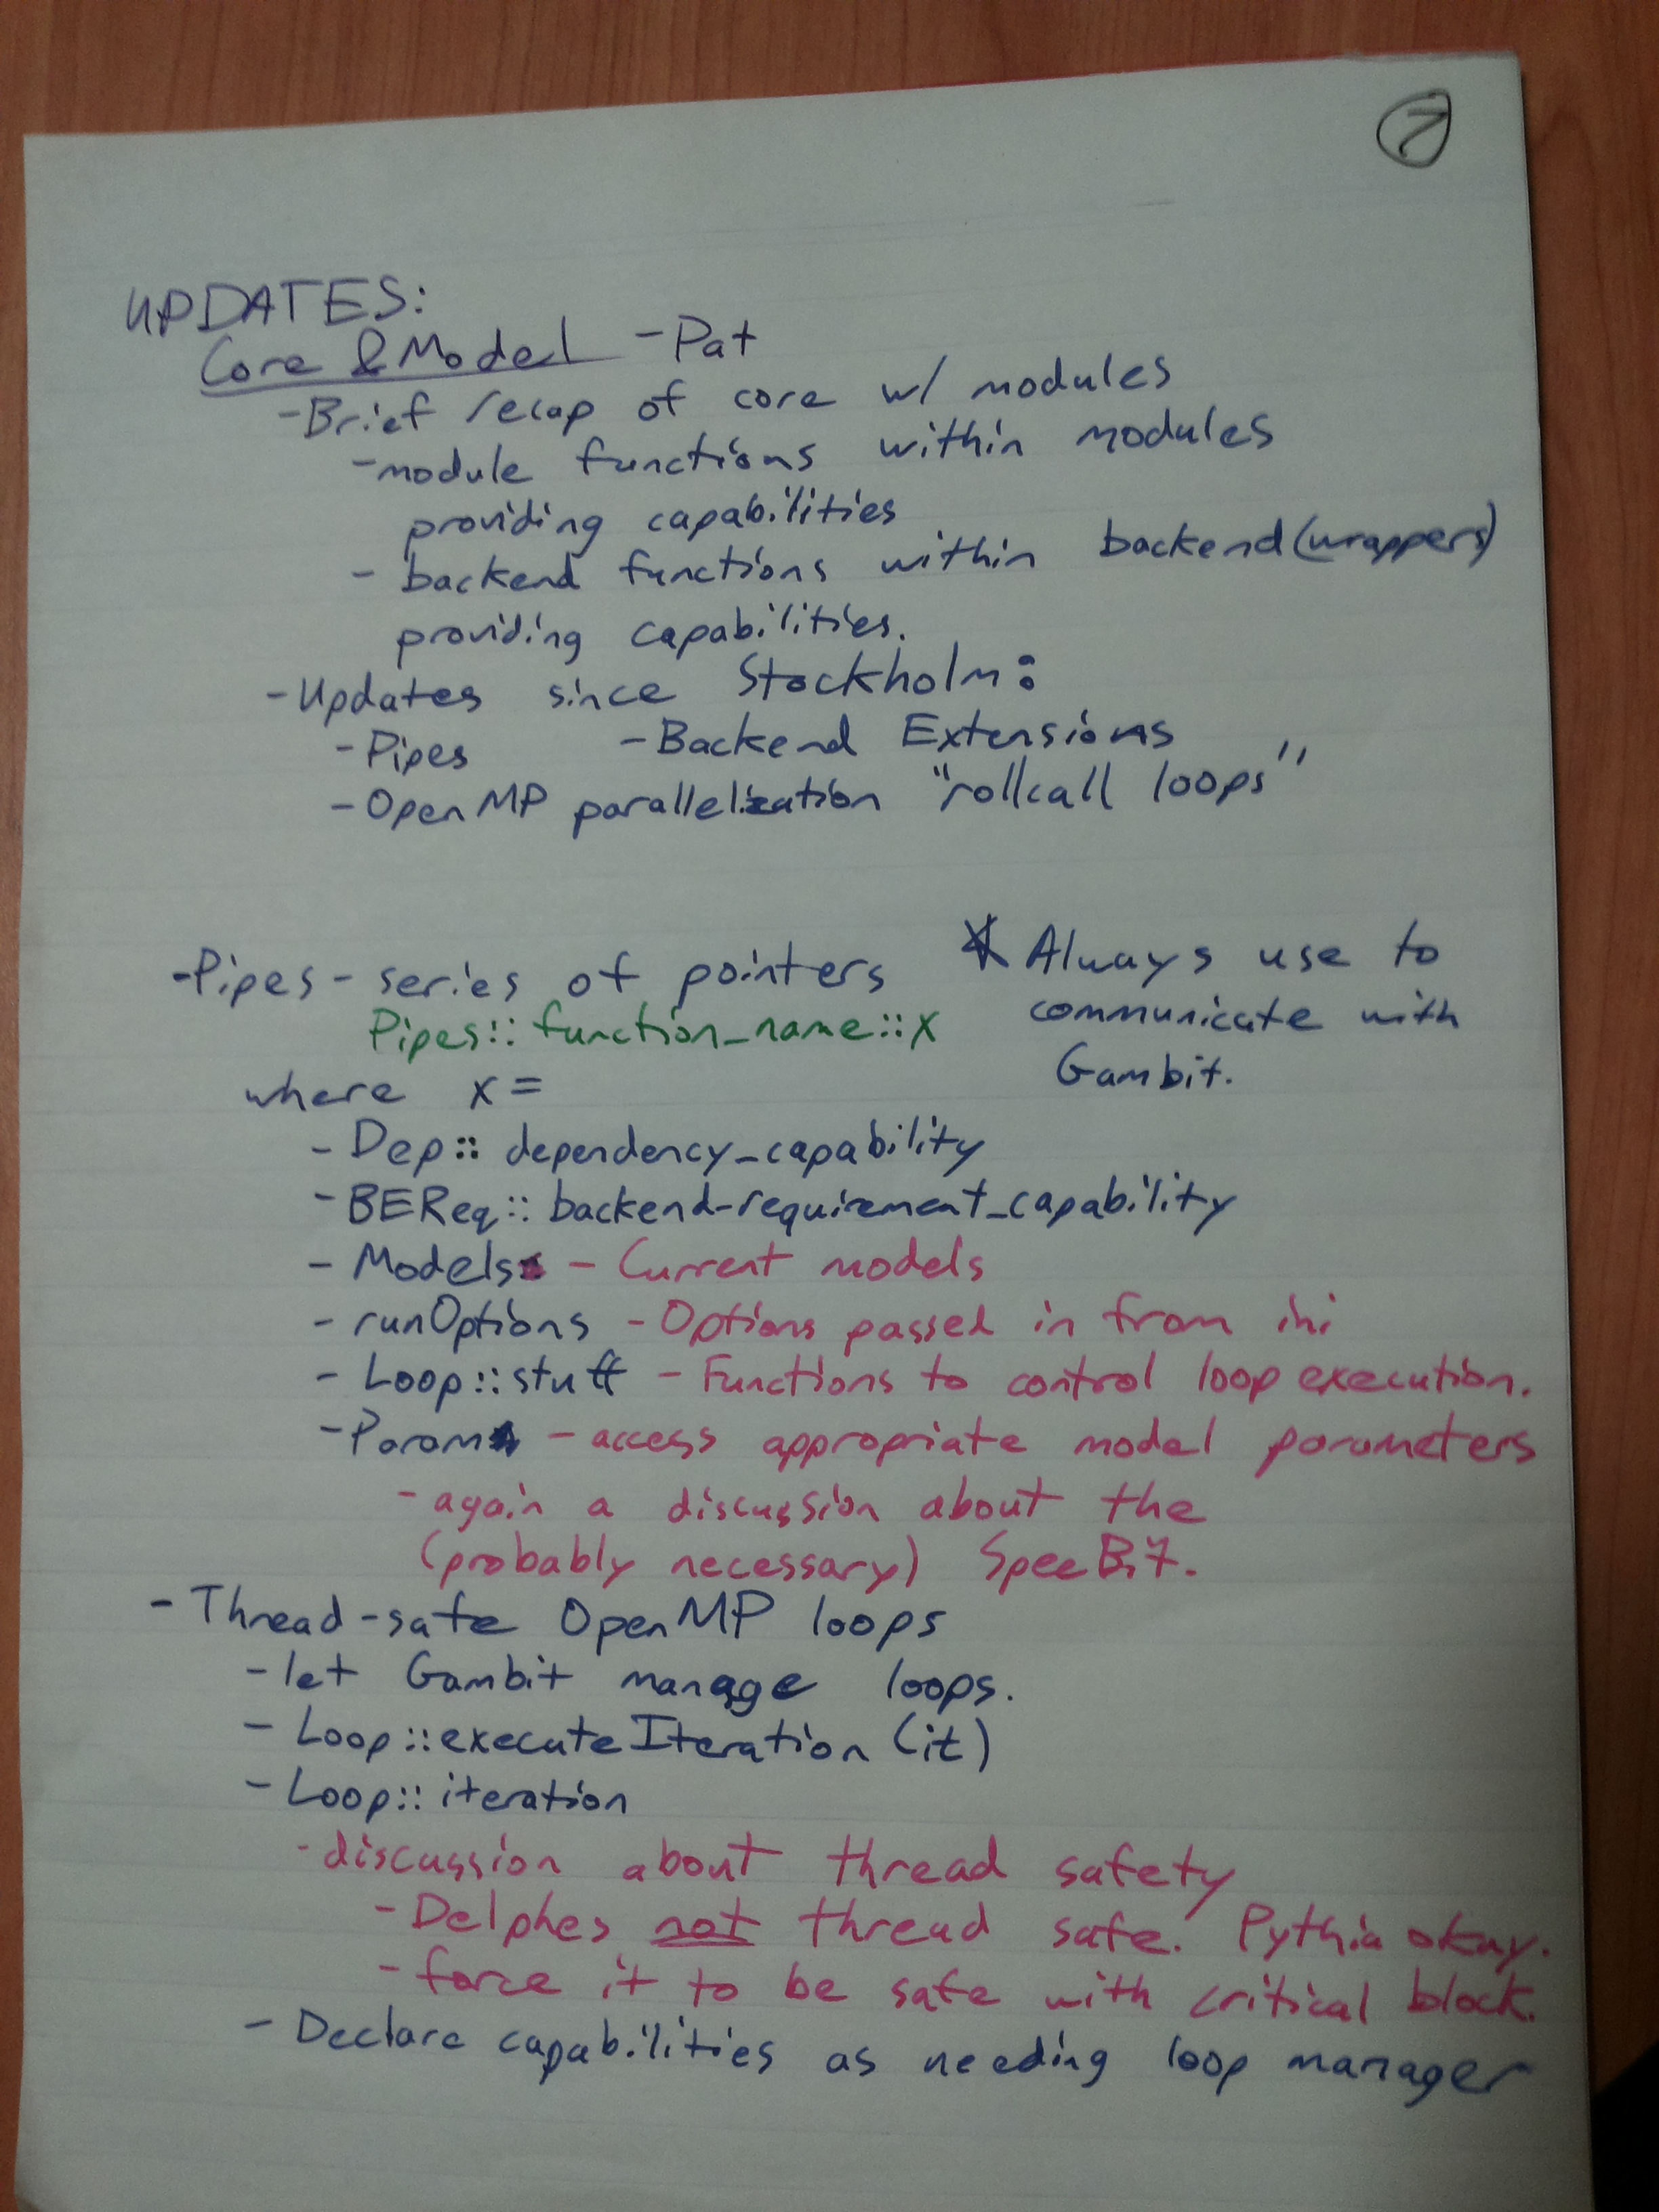 7
UPDATES:
Core & Model - Pat
- Brief recap of core w/ modules
- module functions within modules
providing capabilities
- backend functions within backend (wrappers)
providing capabilities.
- Updates since Stockholm:
- Pipes - Backend Extensions
- OpenMP parallelization "rollcall loops"
- Pipes - series of pointers
Pipes::function_name::x
* Always use to
communicate with
Gambit.
where x =
- Dep::dependency_capability
- BEReq::backend-requirement_capability
- Models - Current models
- runOptions - Options passed in from ini
- Loop::stuff - Functions to control loop execution.
- Param - access appropriate model parameters
- again a discussion about the
(probably necessary) SpecBit.
- Thread-safe OpenMP loops
- let Gambit manage loops.
- Loop::executeIteration (it)
- Loop::iteration
- discussion about thread safety
- Delphes not thread safe. Pythia okay.
- force it to be safe with critical block.
- Declare capabilities as needing loop manager